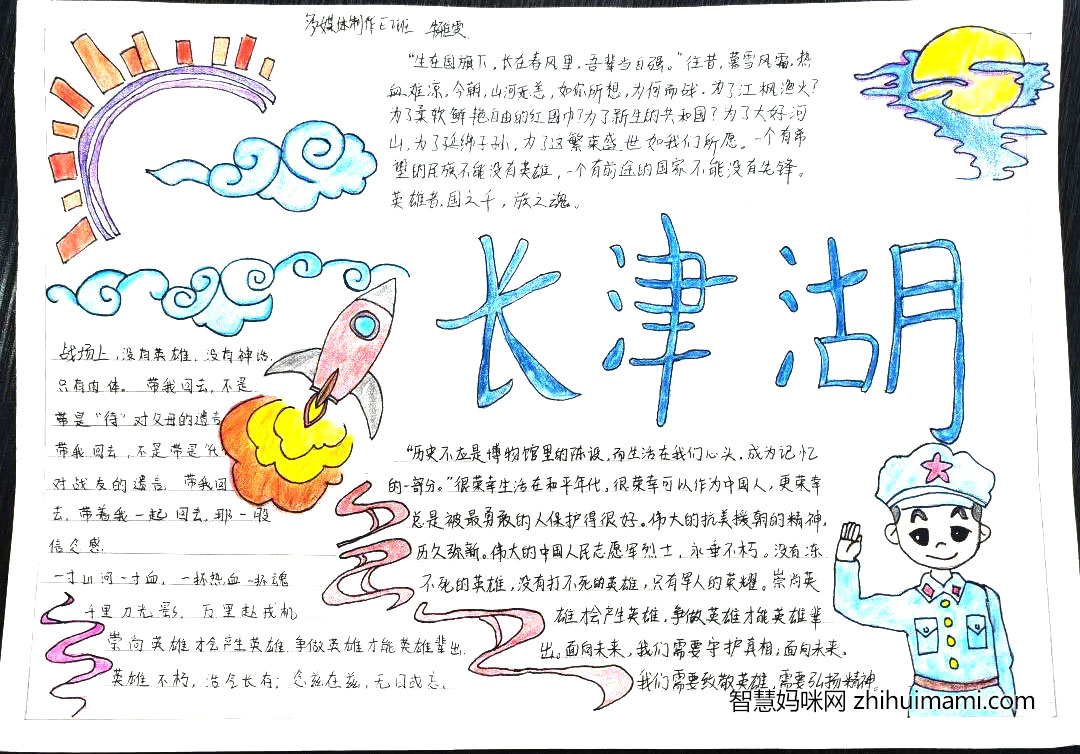 多媒体制作E2班
"生在国旗下,长在春风里,吾辈当自强。"往昔,暮雪风霜,热
血雄凉,今朝,山河无恙,如你所想,为何而战,为了江枫渔火?
为了柔软鲜艳自由的红围巾?为了新生的共和国?为了大好河
山,为了延绵子孙,为了这繁荣盛世如我们所愿。一个有希
望的民族不能没有英雄,一个有前途的国家不能没有先锋。
英雄者,国之干,族之魂。
长津湖
战场上,没有英雄、没有神话,
只有肉体。带我回去,不是
带是"待"对父母的遗言
带我回去,不是带是"代
对战友的遗言,带我回
去,带着我一起回去,那一股
信念感.
一寸山河一寸血,一抔热血一抔魂
千里刀光影,万里赴戎机
崇尚英雄才会产生英雄 争做英雄才能英雄辈出.
英雄不朽,浩气长存;念兹在兹,无日或忘.
"历史不应是博物馆里的陈设,而生活在我们心头,成为记忆
的一部分。"很荣幸生活在和平年代,很荣幸可以作为中国人,更荣幸
总是被最勇敢的人保护得很好。伟大的抗美援朝的精神,
历久弥新。伟大的中国人民志愿军烈士,永垂不朽。没有冻
不死的英雄,没有打不死的英雄,只有军人的荣耀。崇尚英
雄才会产生英雄,争做英雄才能英雄辈
出。面向未来,我们需要守护真相;面向未来,
我们需要致敬英雄,需要弘扬精神。
智慧妈咪网 zhihuimami.com